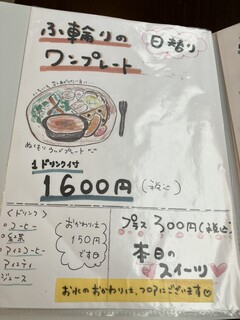 ふ輪りの
ワンプレート
日替り
1ドリンク付
1600円(税込)
<ドリンク>
コーヒー
紅茶
アイスコーヒー
アイスティ
ジュース
おかわりは
150円
です
プラス300円(税込)
本日の
スイーツ
お水のおかわりは、フロアにございます